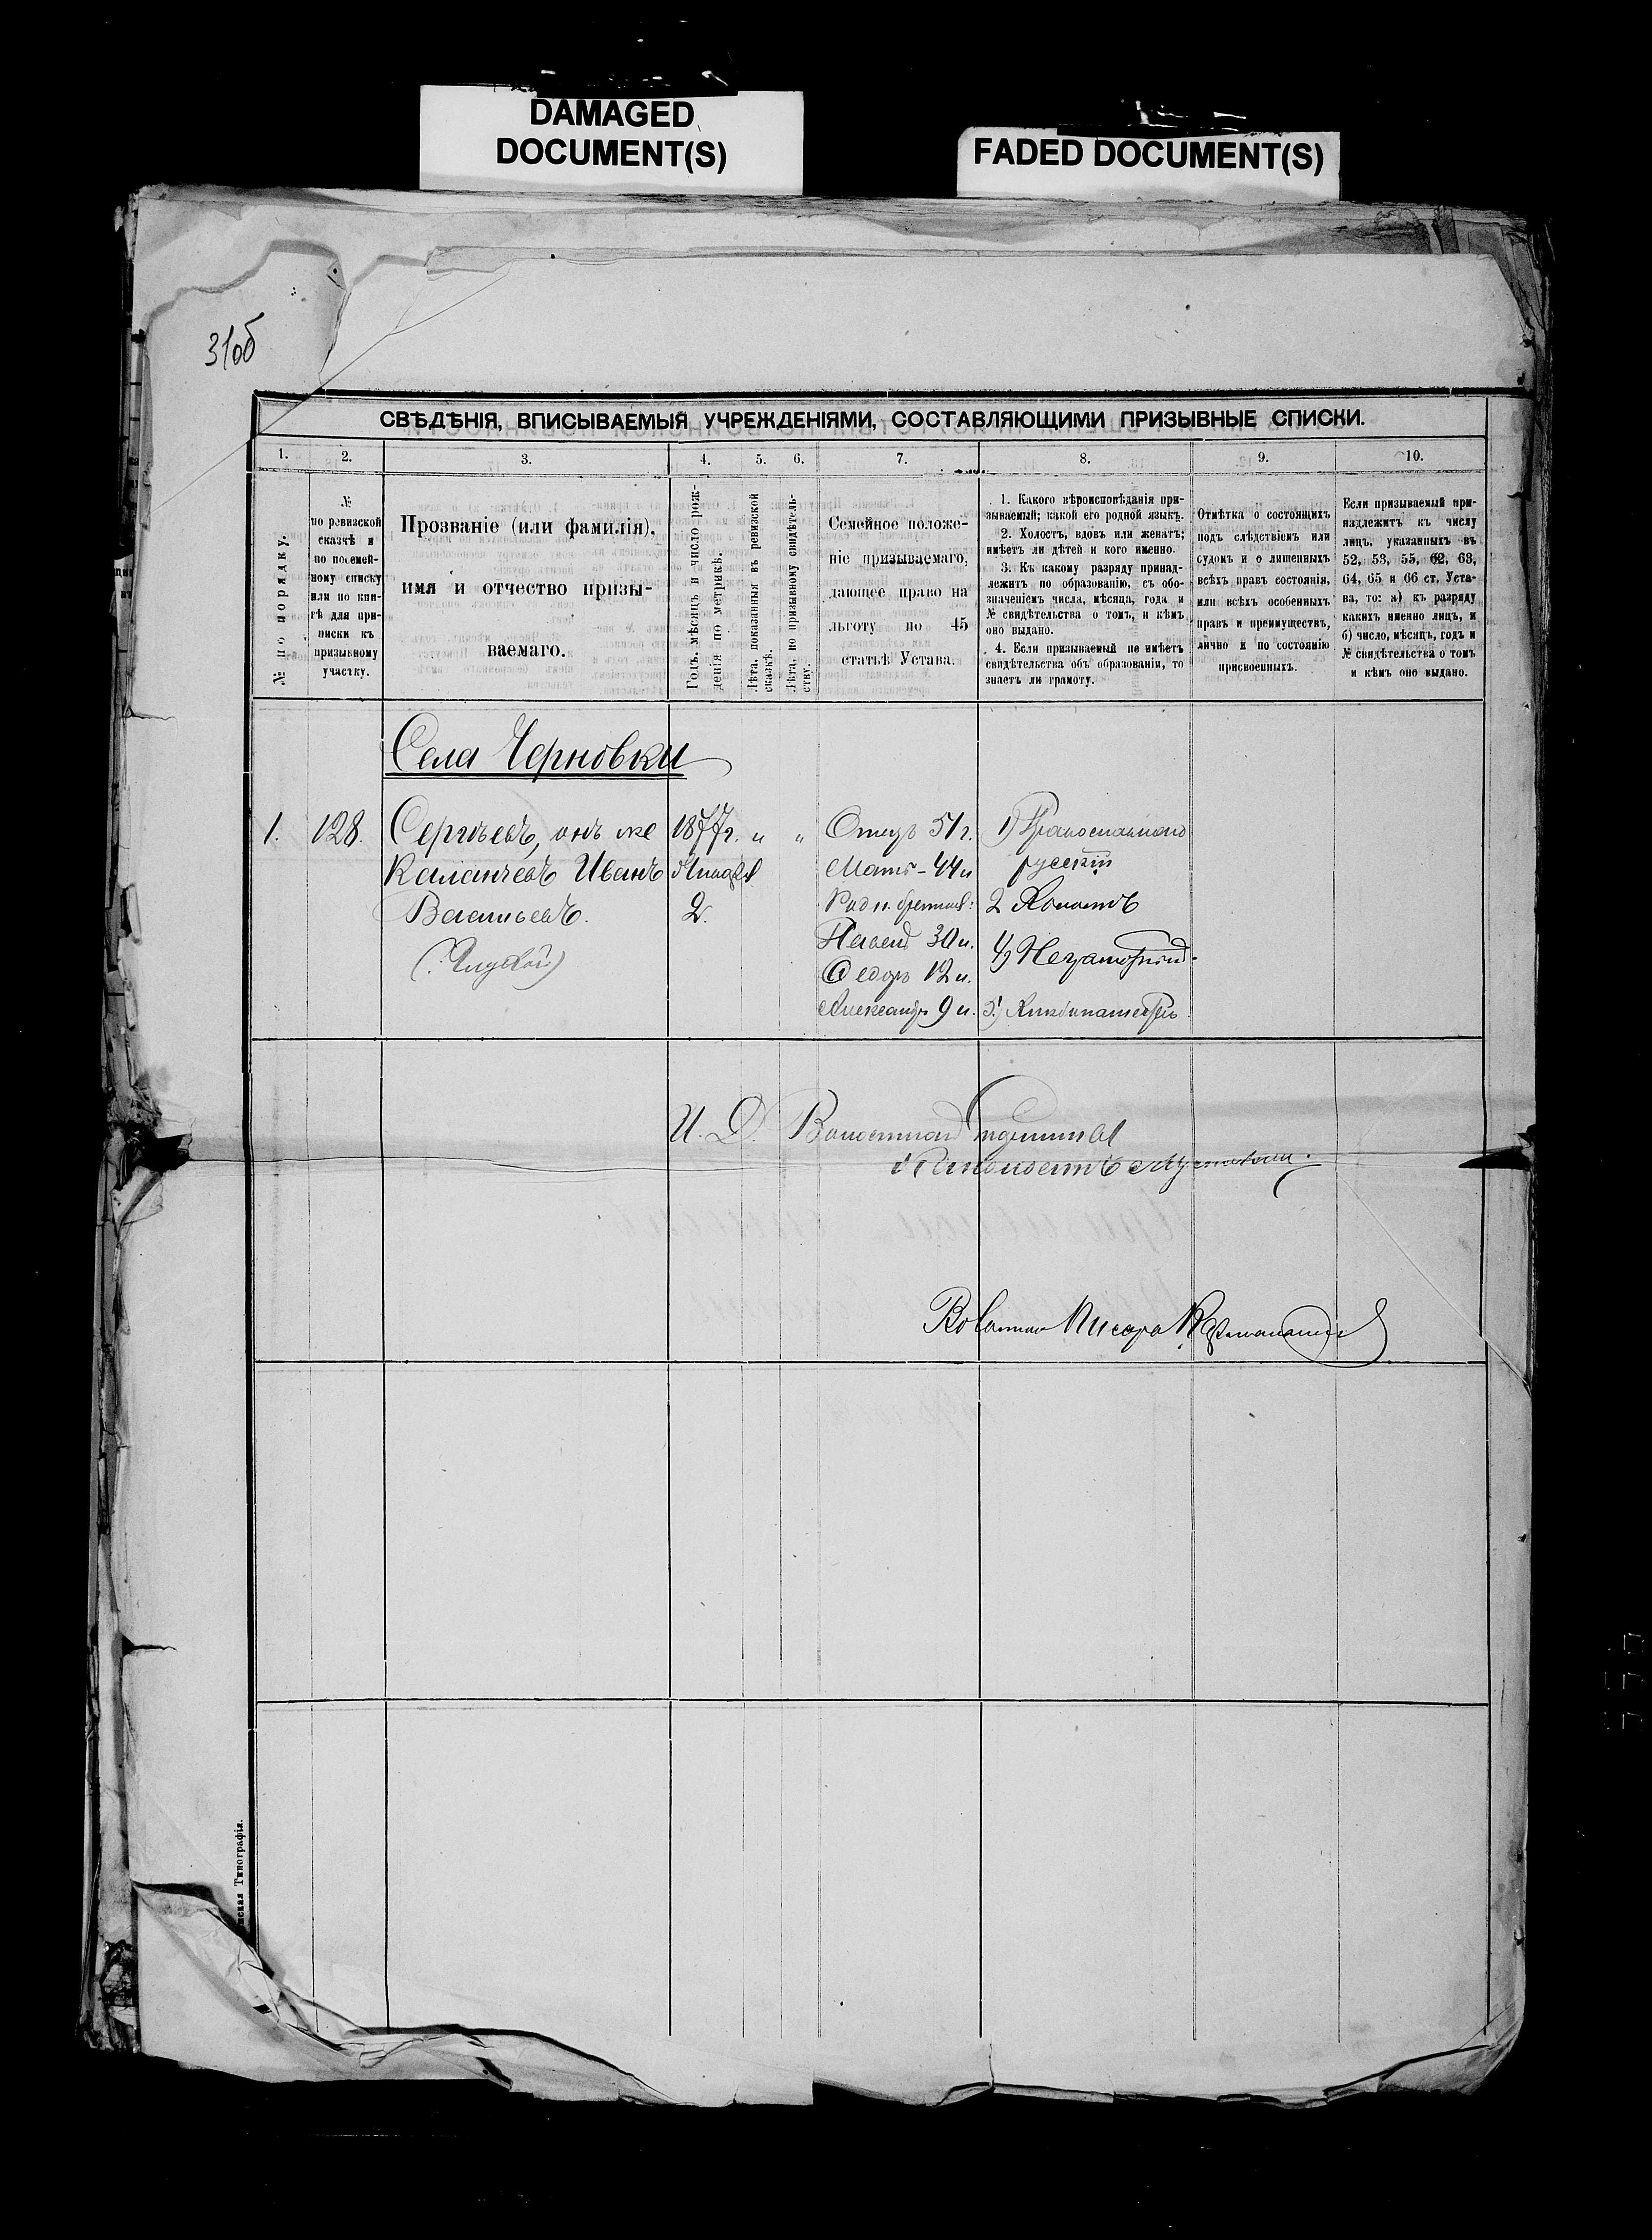 DAMAGED
DOCUMENT(S)
FADED DOCUMENT(S)
31об
СВѢДѢНІЯ, ВПИСЫВАЕМЫЯ УЧРЕЖДЕНІЯМИ, СОСТАВЛЯЮЩИМИ ПРИЗЫВНЫЕ СПИСКИ.
1. 2. 3. 4. 5. 6. 7. 8. 9. 10.
№ по порядку.
№
по ревизской
сказкѣ и
по посемей-
ному списку
или по кни-
гѣ для при-
писки къ
призывному
участку.
Прозваніе (или фамилія),
имя и отчество призы-
ваемаго.
Годъ, мѣсяцъ и число рож-
денія по метрикѣ.
Лѣта, показанныя въ ревизской
сказкѣ.
Лѣта, по призывному свидѣтель-
ству.
Семейное положе-
ніе призываемаго,
дающее право на
льготу по 45
статьѣ Устава.
1. Какого вѣроисповѣданія при-
зываемый; какой его родной языкъ.
2. Холостъ, вдовъ или женатъ;
имѣетъ ли дѣтей и кого именно.
3. Къ какому разряду принад-
лежитъ по образованію, съ обо-
значеніемъ числа, мѣсяца, года и
№ свидѣтельства о томъ, и кѣмъ
оно выдано.
4. Если призываемый не имѣетъ
свидѣтельства объ образованіи, то
знаетъ ли грамоту.
Отмѣтка о состоящихъ
подъ слѣдствіемъ или
судомъ и о лишенныхъ
всѣхъ правъ состоянія,
или всѣхъ особенныхъ
правъ и преимуществъ,
лично и по состоянію
присвоенныхъ.
Если призываемый при-
надлежитъ къ числу
лицъ, указанныхъ въ
52, 53, 55, 62, 63,
64, 65 и 66 ст. Уста-
ва, то: а) къ разряду
какихъ именно лицъ, и
б) число, мѣсяцъ, годъ и
№ свидѣтельства о томъ
и кѣмъ оно выдано.
Села Черновки
1. 128. Сергѣевъ, онъ же 1877г. " " Отецъ 51 г. 1) Православнаго
Каланчевъ Иванъ Января Мать - 44 и русскій
Васильевъ. 2. Родн. братья: 2 Холостъ
Павелъ 30 и. 4) Неграмотный.
Федоръ 12 и.
Александръ 9 и. 5) Хлѣбопашецъ
И. Д. Волостнаго Старшины
Волостной Писарь